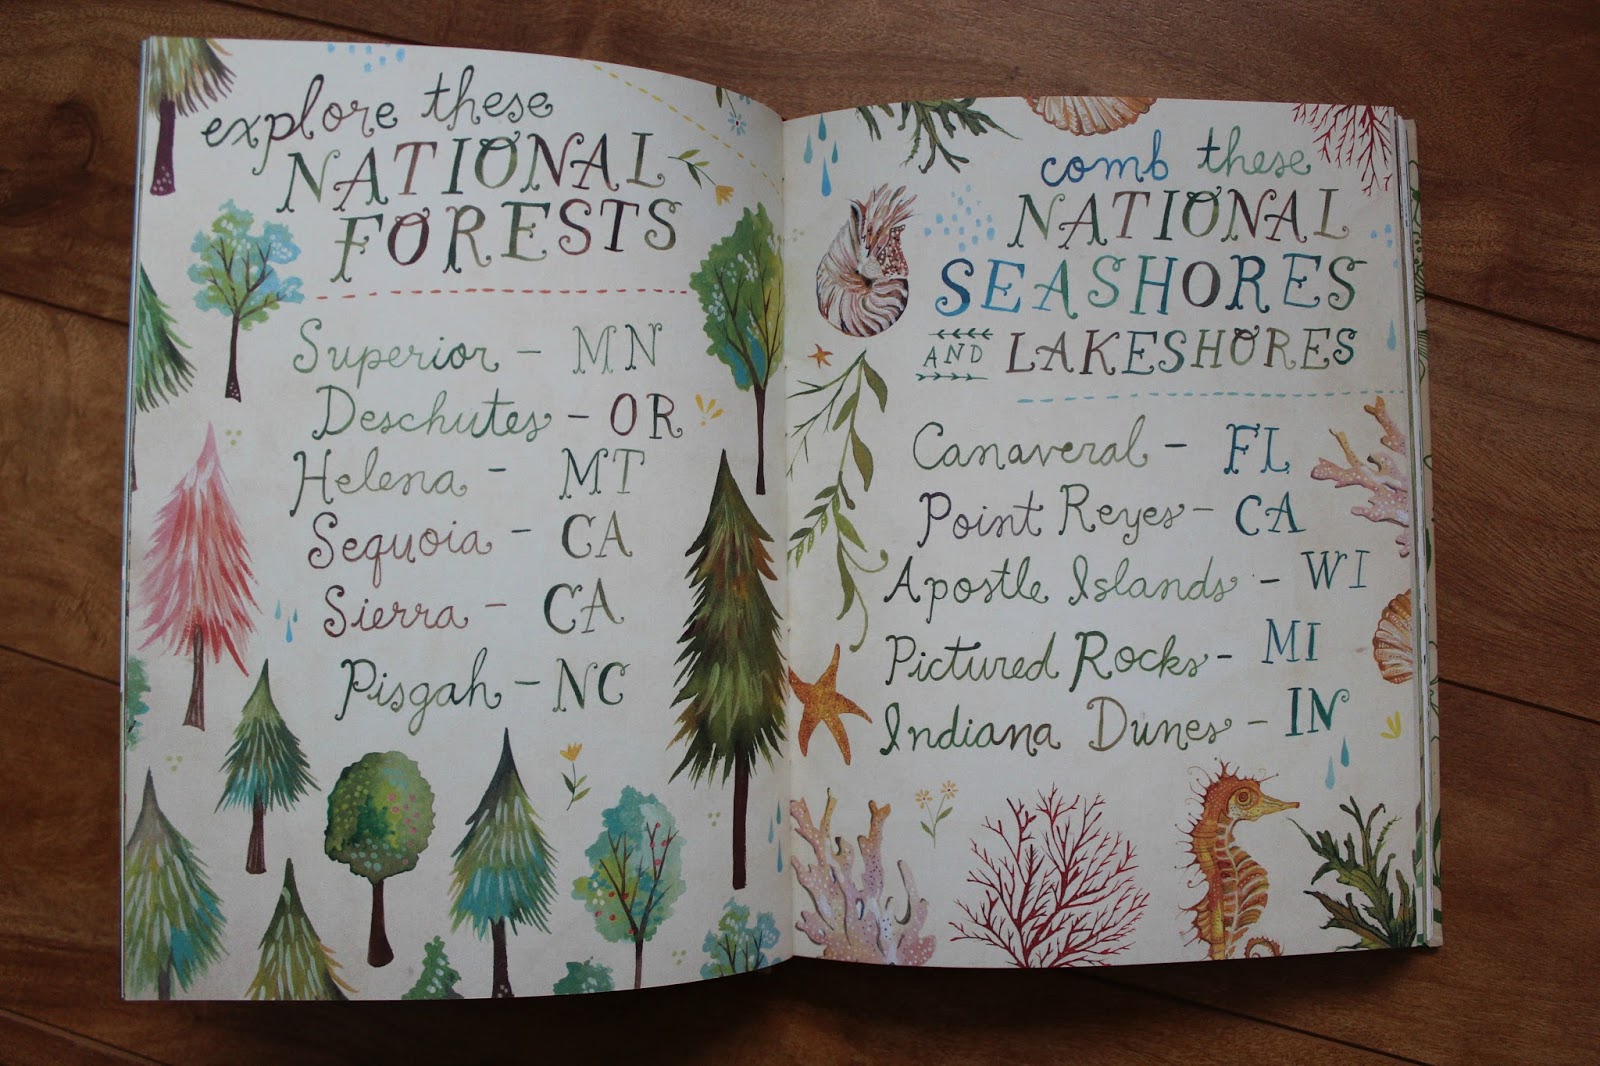 explore these
NATIONAL
FORESTS
Superior - MN
Deschutes - OR
Helena - MT
Sequoia - CA
Sierra - CA
Pisgah - NC
comb these
NATIONAL
SEASHORES
AND LAKESHORES
Canaveral - FL
Point Reyes - CA
Apostle Islands - WI
Pictured Rocks - MI
Indiana Dunes - IN